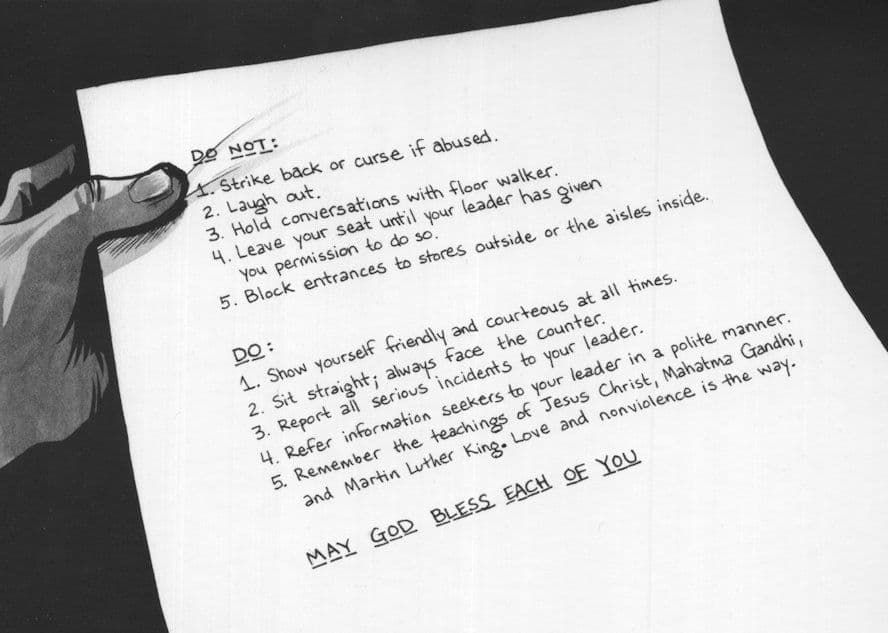 DO NOT:
1. Strike back or curse if abused.
2. Laugh out.
3. Hold conversations with floor walker.
4. Leave your seat until your leader has given
you permission to do so.
5. Block entrances to stores outside or the aisles inside.
DO:
1. Show yourself friendly and courteous at all times.
2. Sit straight; always face the counter.
3. Report all serious incidents to your leader.
4. Refer information seekers to your leader in a polite manner.
5. Remember the teachings of Jesus Christ, Mahatma Gandhi,
and Martin Luther King. Love and nonviolence is the way.
MAY GOD BLESS EACH OF YOU